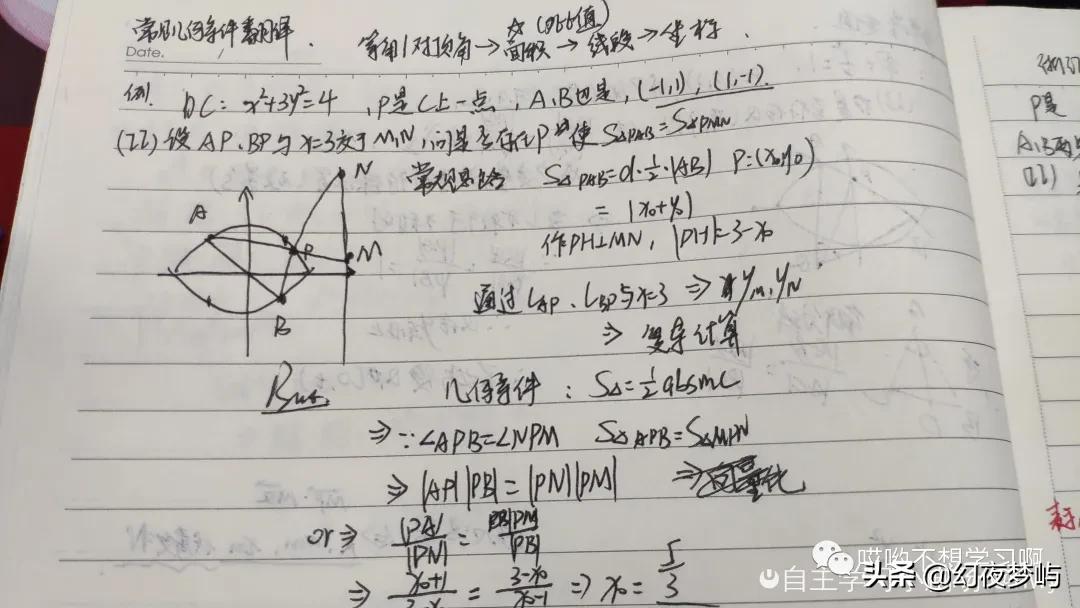 常用几何条件翻译.
Date. /
等角/对顶角→面积→线段→坐标.
☆(比值)
例. C: x²+3y²=4, P是C上一点, A、B也是, (-1,1), (1,-1).
(II) 设AP、BP与x=3交于M,N,问是否存在P使S△PAB=S△PMN
常规思路 S△PAB=d·½·|AB| P=(x₀,y₀)
=|x₀+y₀|
作PH⊥MN, |PH|=3-x₀
通过L_AP、L_BP与x=3 ⇒ y_M, y_N
⇒ 复杂计算
N
A
P
M
B
But
几何条件: S△=½absinC
⇒∵∠APB=∠NPM S△APB=S△MPN
⇒ |AP||PB|=|PN||PM|
or ⇒ |PA|/|PN| = |PM|/|PB|
⇒ x₀+1/3-x₀ = 3-x₀/x₀-1 ⇒ x₀=5/3
P是
(II)
哎哟不想学习啊
头条@幻夜梦屿